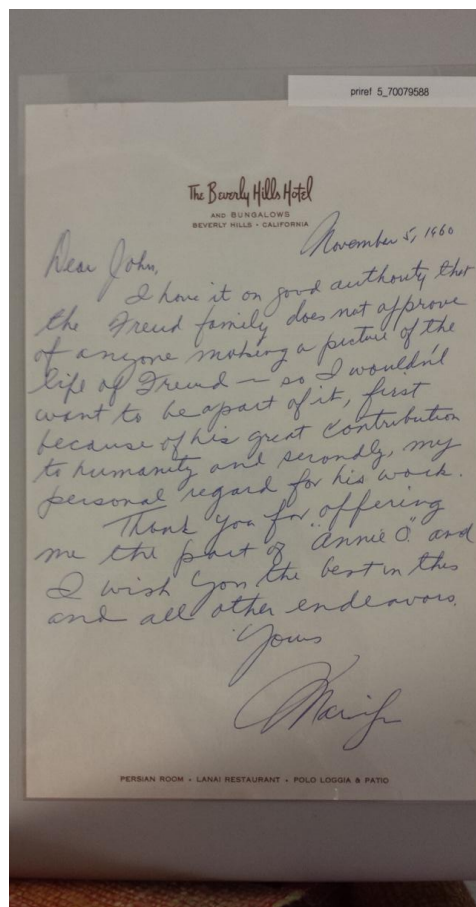 priref 5_70079588
The Beverly Hills Hotel
AND BUNGALOWS
BEVERLY HILLS • CALIFORNIA
November 5, 1960
Dear John,
I have it on good authority that
the Freud family does not approve
of anyone making a picture of the
life of Freud — so I wouldn't
want to be apart of it, first
because of his great contribution
to humanity and secondly, my
personal regard for his work.
Thank you for offering
me the part of "Annie O." and
I wish you the best in this
and all other endeavors.
Yours
Marilyn
PERSIAN ROOM • LANAI RESTAURANT • POLO LOGGIA & PATIO